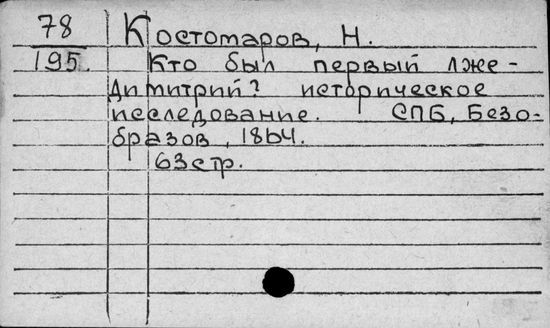 78 Костомаров, Н.
195. Кто был первый лже-
Димитрий? историческое
исследование. СПБ, Безо-
бразов, 1864.
63стр.